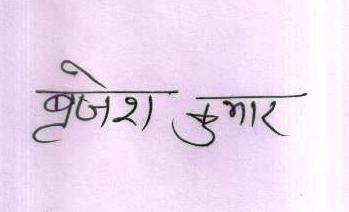 बृजेश कुमार